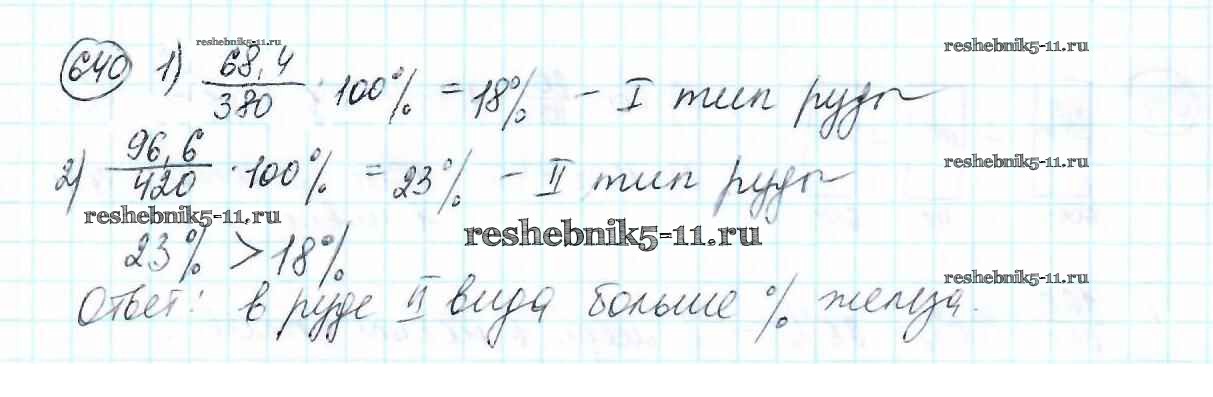 reshebnik5-11.ru
reshebnik5-11.ru
640 1) 68,4/380 · 100% = 18% - I тип руды
2) 96,6/420 · 100% = 23% - II тип руды
reshebnik5-11.ru
reshebnik5-11.ru
reshebnik5-11.ru
23% > 18%
reshebnik5-11.ru
Ответ: в руде II вида больше % железа.